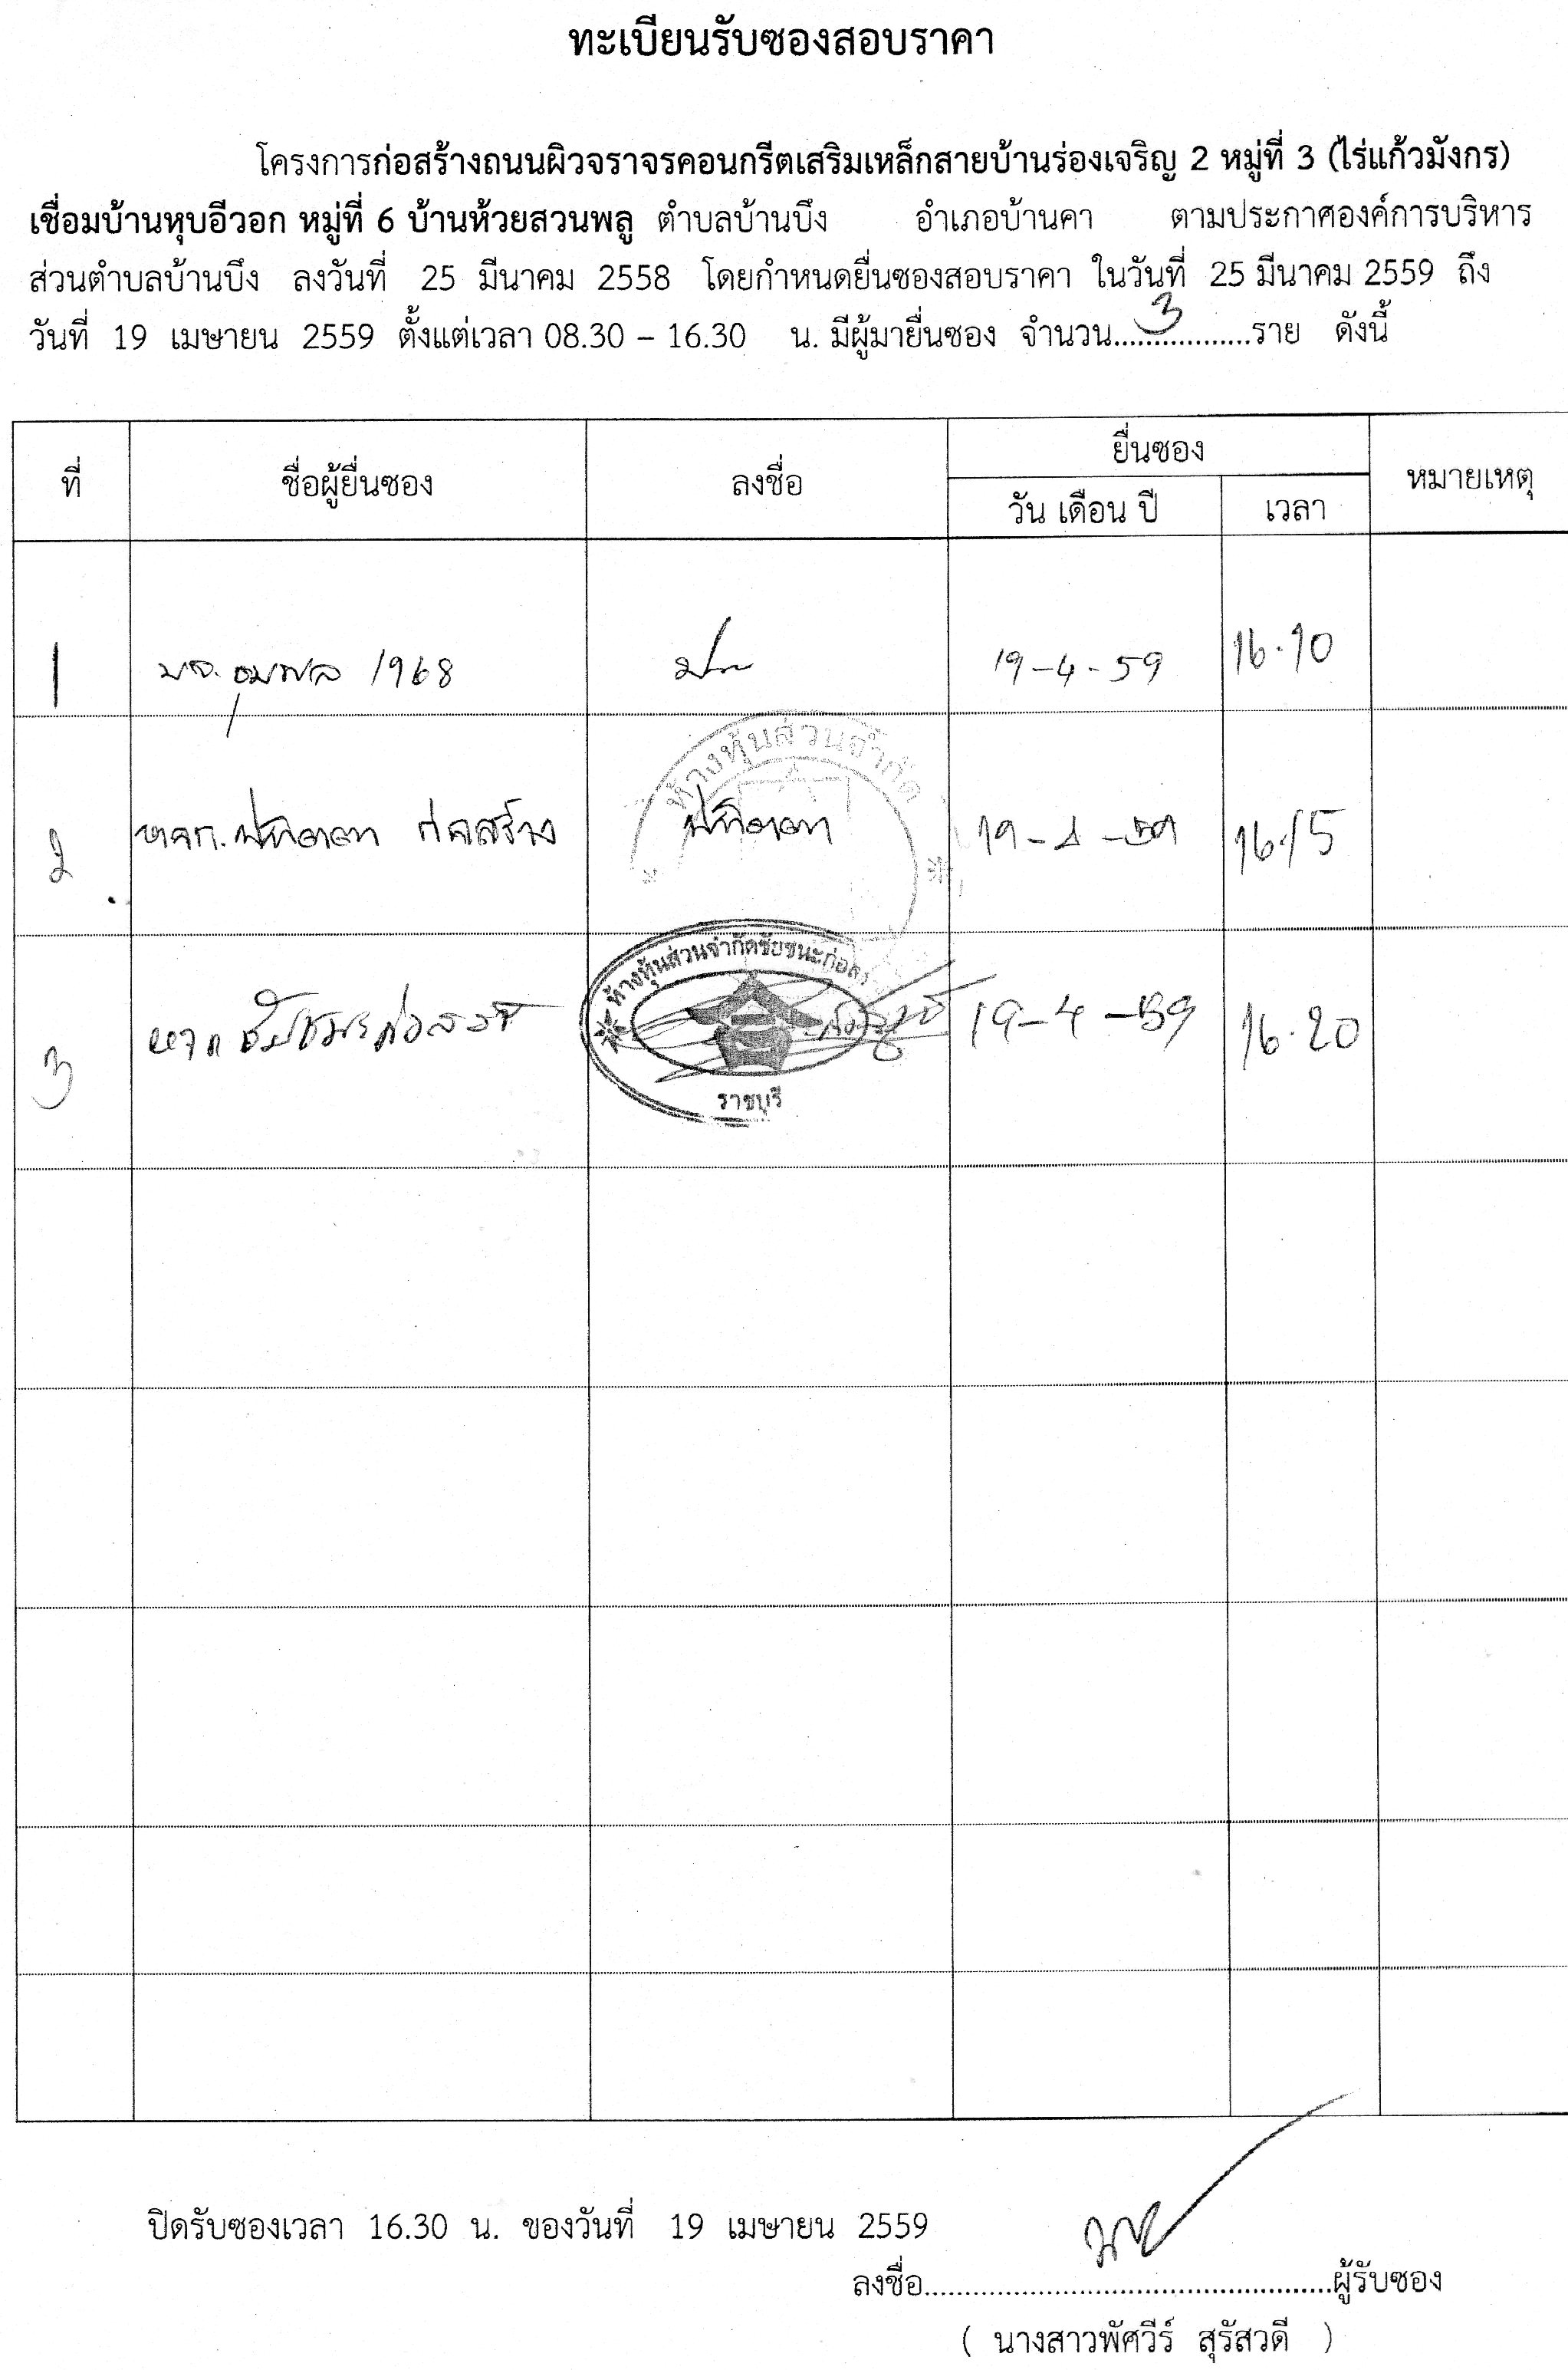 ทะเบียนรับซองสอบราคา
โครงการก่อสร้างถนนผิวจราจรคอนกรีตเสริมเหล็กสายบ้านร่องเจริญ 2 หมู่ที่ 3 (ไร่แก้วมังกร)
เชื่อมบ้านหุบอีวอก หมู่ที่ 6 บ้านห้วยสวนพลู ตำบลบ้านบึง อำเภอบ้านคา ตามประกาศองค์การบริหาร
ส่วนตำบลบ้านบึง ลงวันที่ 25 มีนาคม 2558 โดยกำหนดยื่นซองสอบราคา ในวันที่ 25 มีนาคม 2559 ถึง
วันที่ 19 เมษายน 2559 ตั้งแต่เวลา 08.30 – 16.30 น. มีผู้มายื่นซอง จำนวน.....3.....ราย ดังนี้
ที่ ชื่อผู้ยื่นซอง ลงชื่อ ยื่นซอง หมายเหตุ
วัน เดือน ปี เวลา
1 1968 19-4-59 16.10
ห้างหุ้นส่วนจำกัด
2 หจก. ก่อสร้าง 19-4-59 16.15
ห้างหุ้นส่วนจำกัดชัยชนะก่อสร้าง
3 หจก ชัยชนะก่อสร้าง 19-4-59 16.20
ราชบุรี
ปิดรับซองเวลา 16.30 น. ของวันที่ 19 เมษายน 2559
ลงชื่อ..........ผู้รับซอง
( นางสาวพัศวีร์ สุรัสวดี )